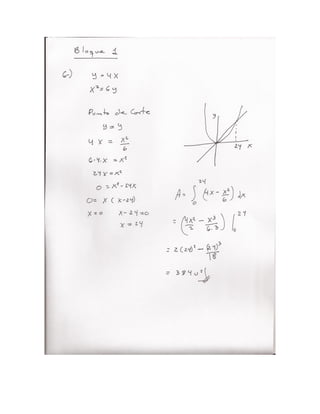 Bloque 1
6-) y = 4x
x² = 6y
Punto de Corte
y = y
4x = x²/6
6·4·x = x²
24x = x²
0 = x² - 24x
0 = x (x-24)
x = 0 x - 24 = 0
x = 24
y
24 x
A = ∫₀²⁴ (4x - x²/6) dx
= (4x²/2 - x³/6·3) |₀²⁴
= 2(24)² - (24)³/18
= 384 u²